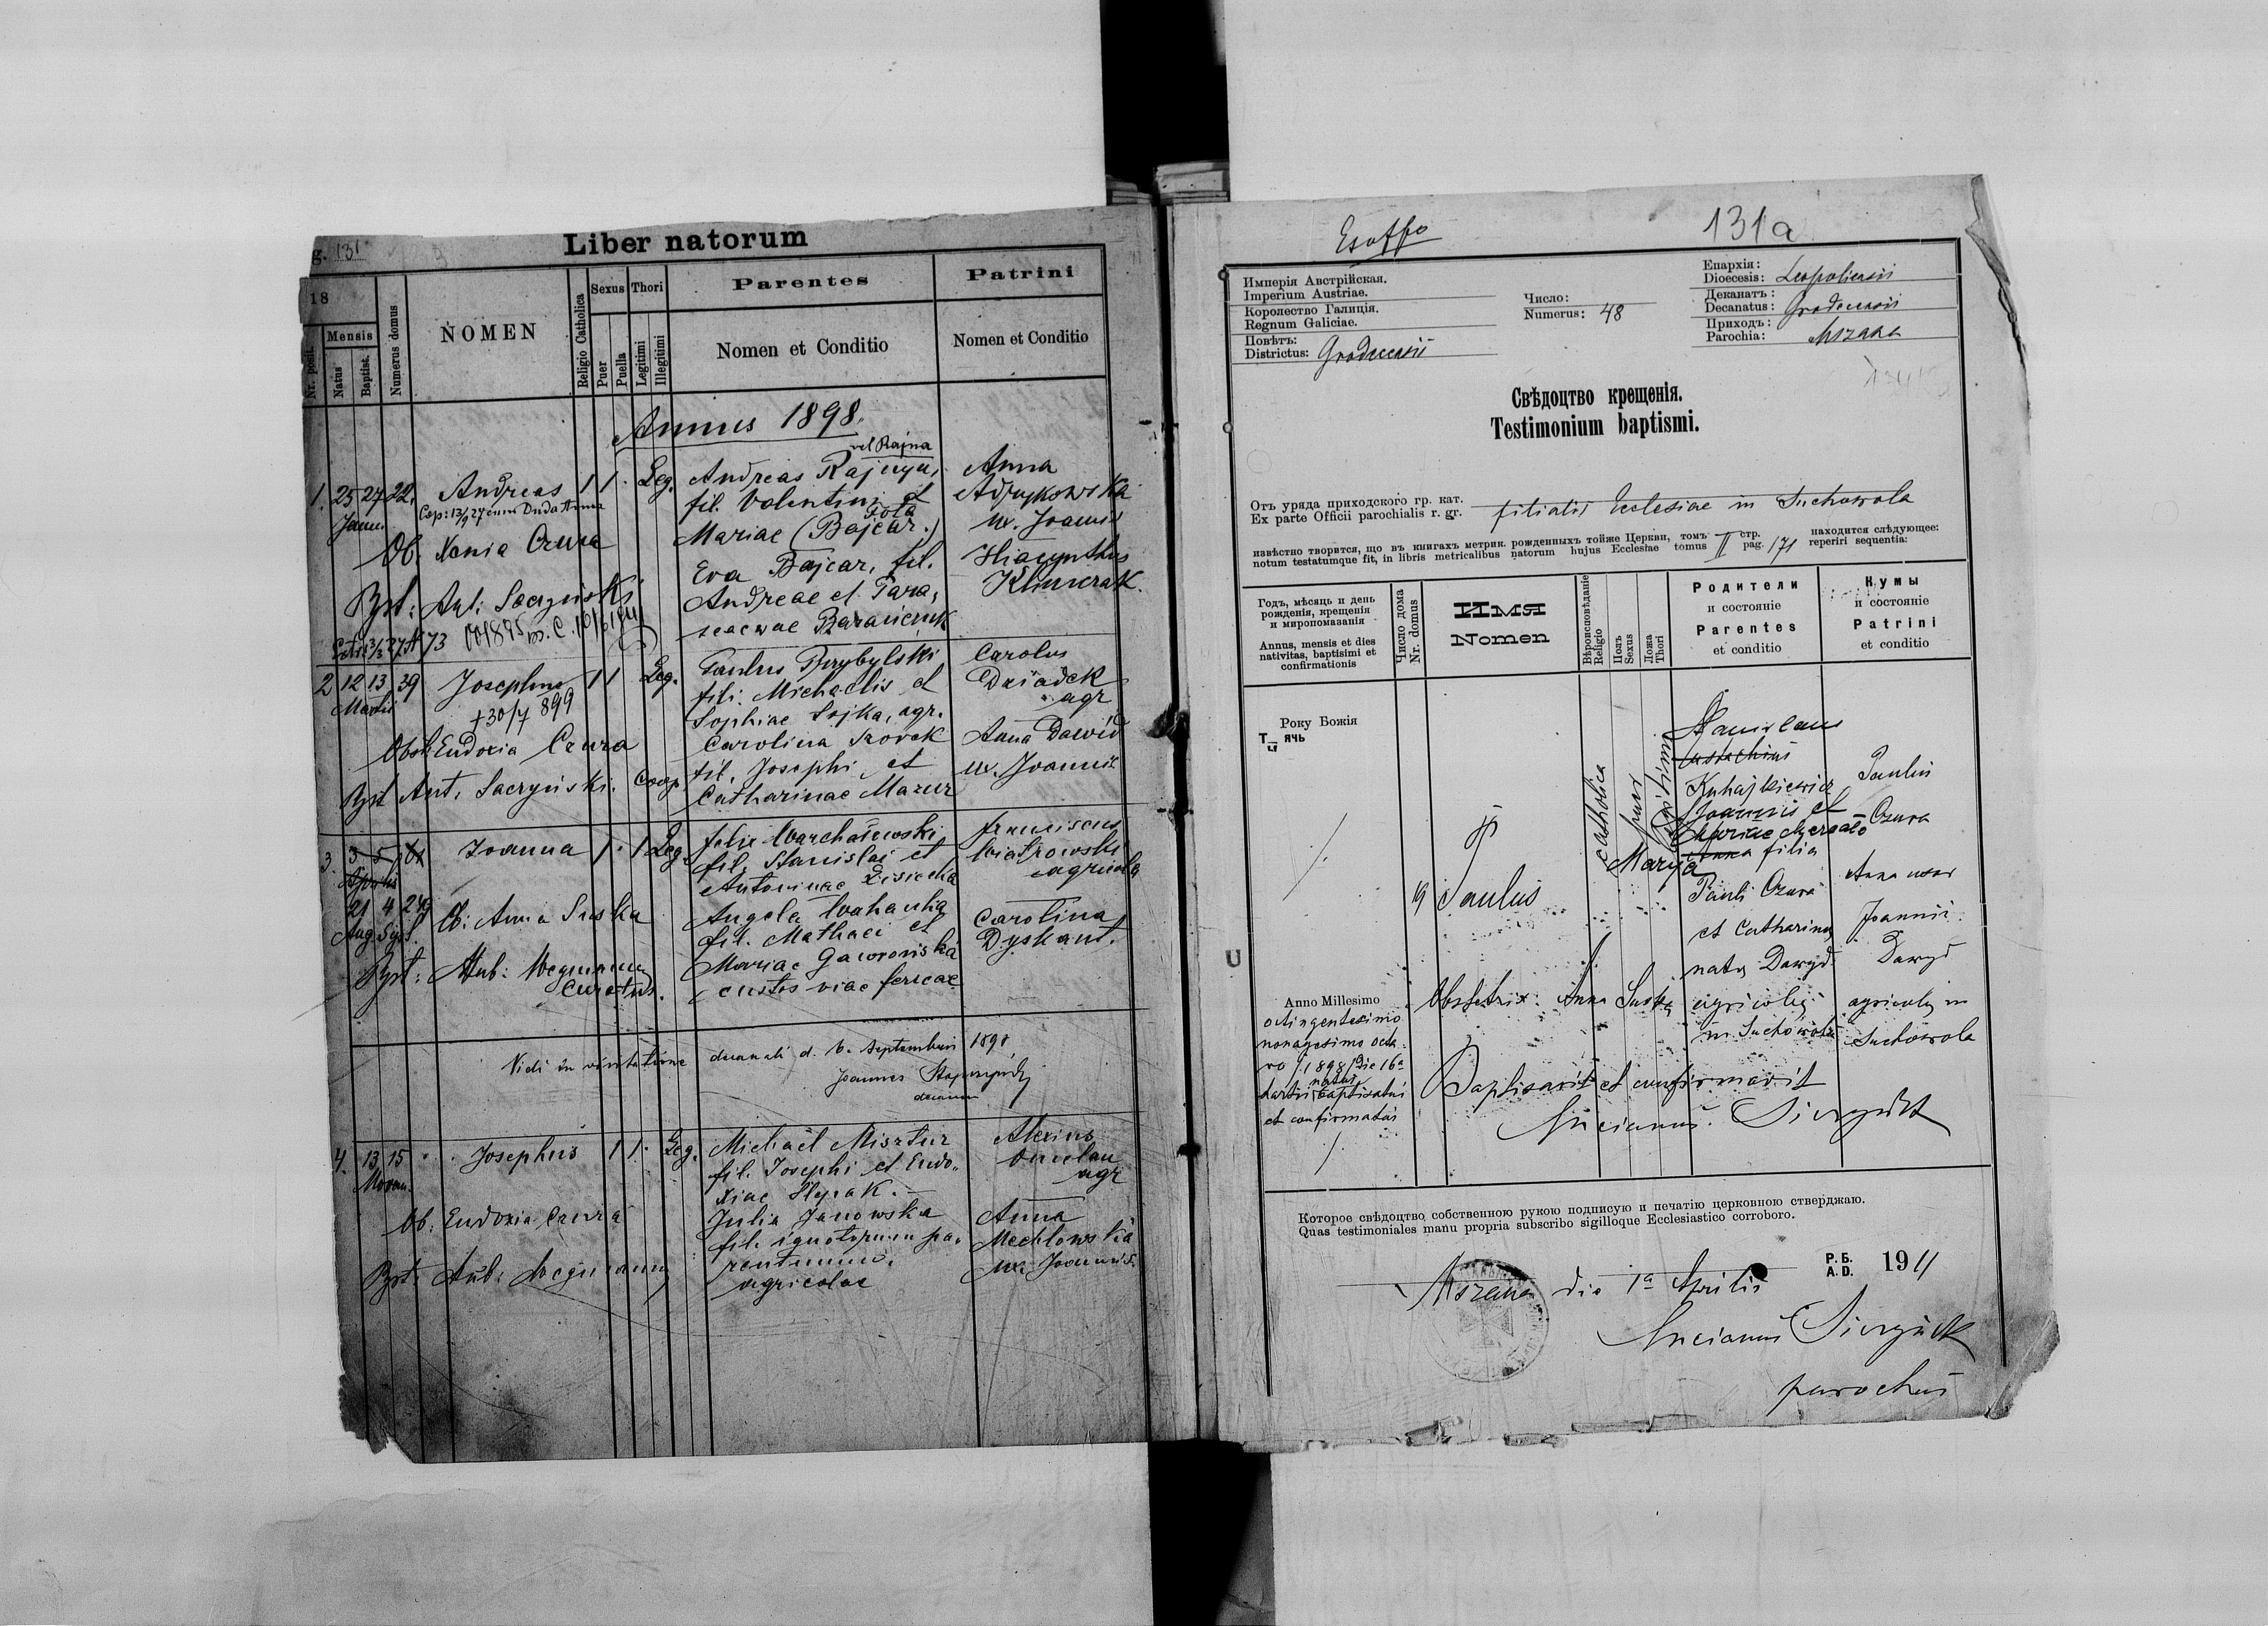 g. 131
Liber natorum
18
Nr. posit.
Mensis
Natus
Baptist.
Numerus domus
NOMEN
Religio Catholica
Sexus
Puer
Puella
Thori
Legitimi
Illegitimi
Parentes
Nomen et Conditio
Patrini
Nomen et Conditio
Annus 1898.
vel Rajna
1. 25 27 22. Andreas 1 1 . Leg. Andreas Anna
Janu. Cop: 13/9 27 cum Duda Anna fil. Valentini et
Mariae (Bajcar.) ux. Joannis
Ob. Xenia Czura
Eva Bajcar, fil. Hiacynthus
Bpt: Ant: Andreae et Para,
scaewae
2 12 13 39 Josephus 1 1 Leg. Paulus Przybylski Carolus
Martii +30/7 899 fil: Michaelis et Dziadek
Sophiae Sojka, agr. agr
Obst: Eudoxia Czura Carolina Anna Dawid
fil. Josephi et ux. Joannis
Bpt Ant. Coop. Catharinae Mazur
3. 3 5 Joanna 1 . 1 Leg. Felix Franciscus
Aprilis fil. Stanislai et
Antoninae agricola
21 4
Aug Spt. Ob: Anna Suska Angela Carolina
fil. Mathaei et Dyskant.
Mariae Gaworońska
Bpt: Curatus. custos viae ferreae
Vidi in visitatione decanali d. 6. Septembris 1898
Joannes
decanus
4. 13 15 Josephus 1 1 . Leg. Michaël Misztur
Novem. fil. Josephi et Eudo„
xiae Ślepak. agr
Ob. Eudoxia Czura Julia Janowska Anna
fil. ignotorum pa„
Bpt: rentum. ux Joannis.
agricolae
131a
Имперія Австрійская.
Imperium Austriae.
Королество Галиція.
Regnum Galiciae.
Повѣтъ:
Districtus: Grodecensis
Число:
Numerus: 48
Епархія:
Dioecesis: Leopoliensis
Деканатъ:
Decanatus: Grodecensis
Приходъ:
Parochia: Mszana
Свѣдоцтво крещенія.
Testimonium baptismi.
Отъ уряда приходского гр. кат.
Ex parte Officii parochialis r. gr. filialis Ecclesiae in Suchowola
извѣстно творится, що въ книгахъ метрик. рожденныхъ тойже Церкви, томъ II стр. находится слѣдующее:
notum testatumque fit, in libris metricalibus natorum hujus Ecclesiae tomus pag. 171 reperiri sequentia:
Годъ, мѣсяць и день
рожденія, крещенія
и миропомазанія
Annus, mensis et dies
nativitas, baptisimi et
confirmationis
Число дома
Nr. domus
Имя
Nomen
Вѣроисповѣданіе
Religio
Полъ
Sexus
Ложа
Thori
Родители
и состояніе
Parentes
et conditio
Кумы
и состояніе
Patrini
et conditio
Року Божія
Т ячь
19 Paulus
catholica
puer
legitimi
Stanislaus
Eustachius
Kuhajkiewicz
Joannis et
Mariae
Marya
Anna filia
Pauli Czura
et Catharinae
natae Dawyd
agricolae
in Suchowola
Paulus
Czura
Anna uxor
Joannis
Dawyd
agricolae in
Suchowola
Anno Millesimo
octingentesimo
nonagesimo octa
vo /1898/ Die 16a
Martii natus baptisatus
et confirmatus
Obstetrix: Anna Suska
Baptisavit et confirmavit
Lucianus
Которое свѣдоцтво собственною рукою подписую и печатію церковною стверджаю.
Quas testimoniales manu propria subscribo sigilloque Ecclesiastico corroboro.
Mszana die 1a Aprilis Р.Б. A.D. 1911
Lucianus
parochus